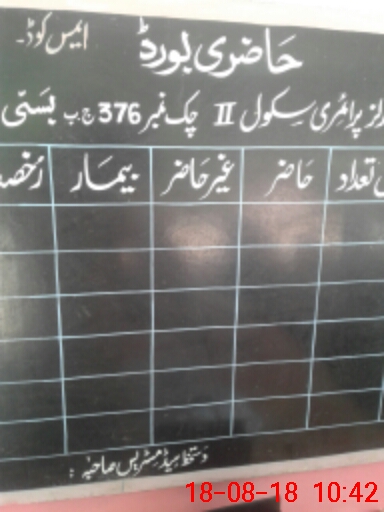 حاضری بورڈ ایمس کوڈ۔
پرائمری سکول II چک نمبر 376 ج ب بستی
تعداد حاضر غیر حاضر بیمار
دستخط ہیڈ مسٹریس صاحبہ :
18-08-18 10:42